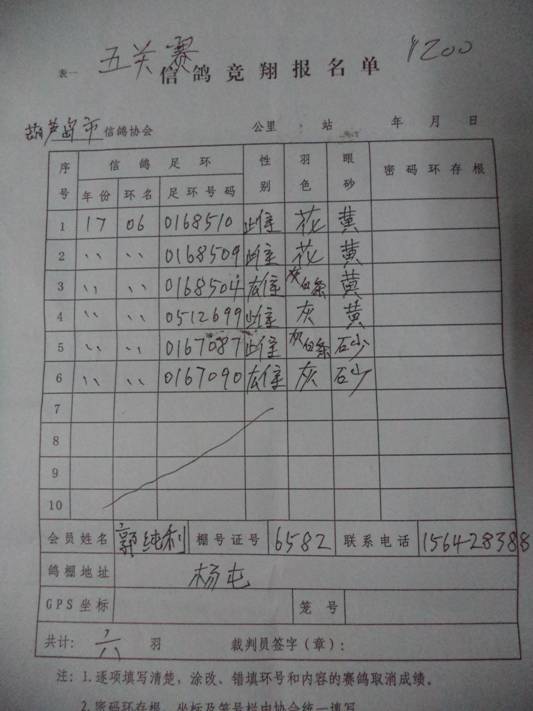 五关赛 ¥200
表一 信鸽竞翔报名单
葫芦岛市信鸽协会 公里 站 年 月 日
序号 信鸽足环 性别 羽色 眼砂 密码环存根
年份 环名 足环号码
1 17 06 0168510 雌 花 黄
2 〃 〃 0168509 雌 花 黄
3 〃 〃 0168504 雄 灰白条 黄
4 〃 〃 0512699 雌 灰 黄
5 〃 〃 0167087 雌 灰白条 砂
6 〃 〃 0167090 雄 灰 砂
7
8
9
10
会员姓名 郭纯利 棚号证号 6582 联系电话 1564283888
鸽棚地址 杨屯
GPS坐标 笼号
共计: 六 羽 裁判员签字(章):
注: 1.逐项填写清楚，涂改、错填环号和内容的赛鸽取消成绩。
2.密码环存根、坐标及笼号栏由协会统一填写